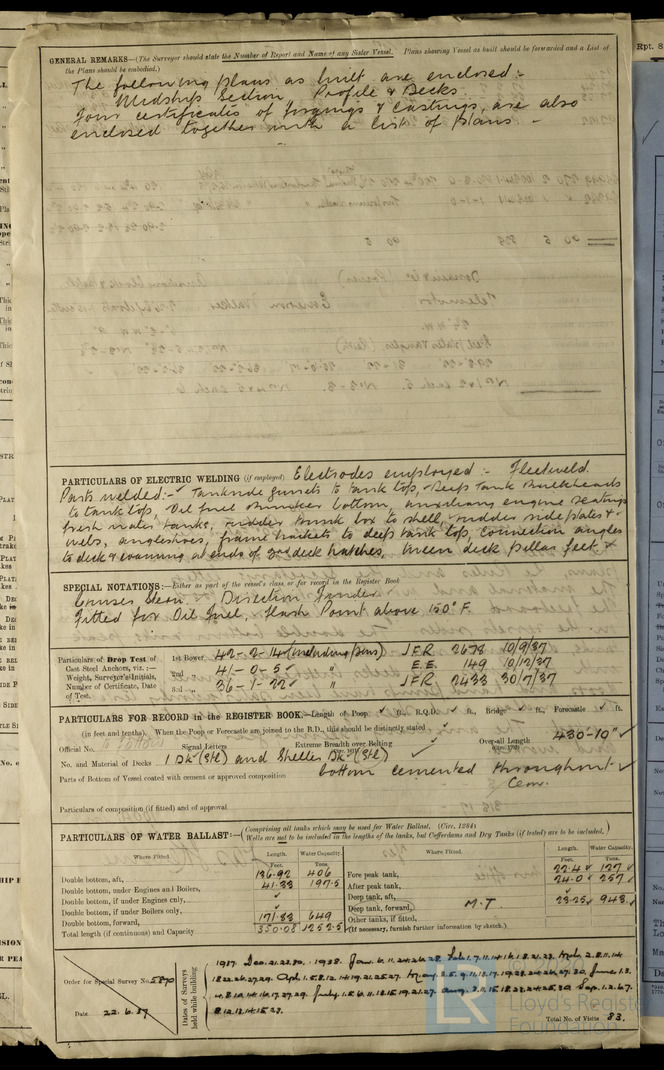 GENERAL REMARKS—(The Surveyor should state the Number of Report and Name of any Sister Vessel. Plans showing Vessel as built should be forwarded and a List of
the Plans should be embodied.)
The following plans as built are enclosed:-
Midship Section, Profile & Decks.
Four certificates of forgings & castings, are also
enclosed together with a list of plans -
PARTICULARS OF ELECTRIC WELDING (if employed) Electrodes employed :- Fleetweld.
Parts welded:- Tankside gussets to tank top, Deep Tank Bulkheads
to tank top, Oil fuel Bunker bottom, auxiliary engine seatings
fresh water tanks, rudder trunk box to shell, rudder side plates &
webs, angleshoes, frame brackets to deep tank top, connection angles
to deck & coaming at ends of 2nd deck hatches, tween deck pillar feet.
SPECIAL NOTATIONS:—Either as part of the vessel's class, or for record in the Register Book
Cruiser Stern. Direction Finder
fitted for Oil Fuel, Flash Point above 150° F.
Particulars of Drop Test of
Cast Steel Anchors, viz.:—
Weight, Surveyor's Initials,
Number of Certificate, Date
of Test.
1st Bower 42-2-14 (including pins) JFR 2678 10/9/37
2nd " 41-0-5 " E.E. 149 10/12/37
3rd " 36-1-22 " JFR 2433 30/7/37
PARTICULARS FOR RECORD in the REGISTER BOOK.—Length of Poop ft., R.Q.D. ft., Bridge ft., Forecastle ft.
(in feet and tenths). When the Poop or Forecastle are joined to the B.D., this should be distinctly stated
Official No. Signal Letters Extreme Breadth over Belting Over-all Length 430-10"
No. and Material of Decks 1 Dk (Stl) and Shelter Dk (Stl)
Parts of Bottom of Vessel coated with cement or approved composition bottom cemented throughout
Cem.
Particulars of composition (if fitted) and of approval
PARTICULARS OF WATER BALLAST:— (Comprising all tanks which may be used for Water Ballast. (Circ. 1284)
Wells are not to be included in the lengths of the tanks, but Cofferdams and Dry Tanks (if tested) are to be included.)
Where Fitted. Length. Water Capacity. Where Fitted. Length. Water Capacity.
Feet. Tons. Feet. Tons.
Double bottom, aft, 136.92 406 Fore peak tank, 22.4 127
Double bottom, under Engines and Boilers, 41.33 197.5 After peak tank, 24.0 257
Double bottom, if under Engines only, Deep tank, aft,
Double bottom, if under Boilers only, Deep tank, forward, M.T 23.25 943
Double bottom, forward, 171.83 649 Other tanks, if fitted,
Total length (if continuous) and Capacity 350.08 1252.5 (If necessary, furnish further information by sketch.)
Order for Special Survey No. 5870
Date 22.6.37
Dates of Surveys
held while building
1937. Dec. 21.23.30. 1938. Jan. 6.11.24.26.28. Feb. 1.7.11.14.16.18.21.23. Mch. 2.8.11.14
18.22.26.27.29. Apl. 1.5.8.12.14.19.21.25.27. May. 3.5.9.11.13.17.19.23.24.26.27.30. June. 1.3.
8.12.13.14.15.23.
Total No. of Visits 83.
LR
Lloyd's Register
Foundation